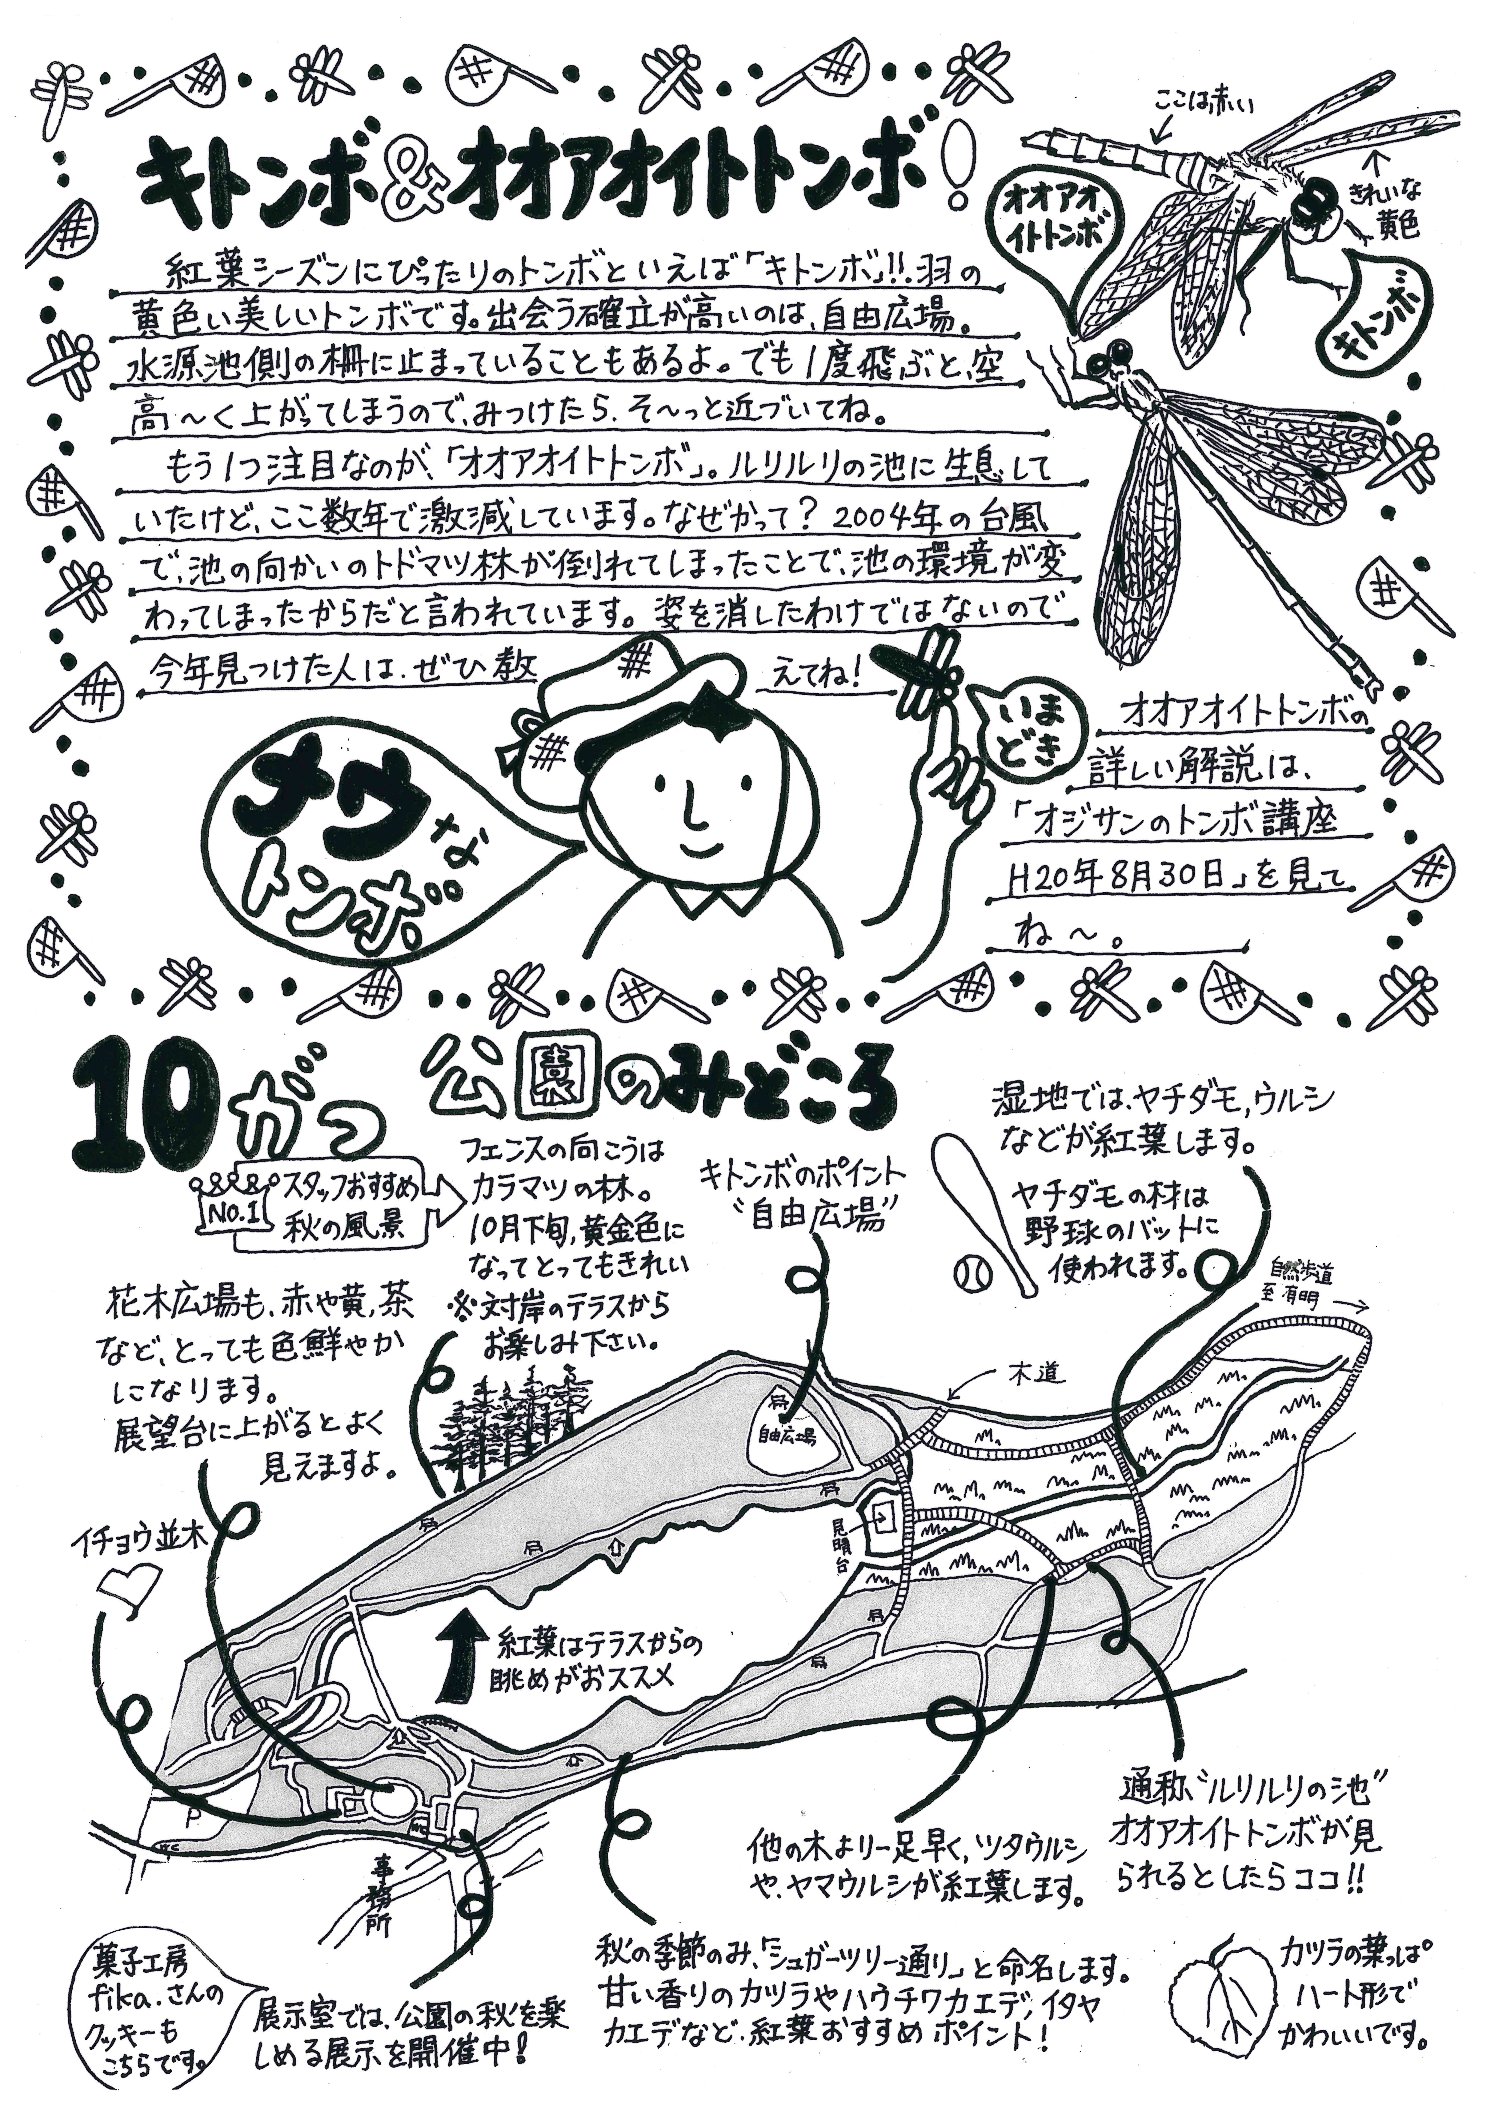 キトンボ&オオアオイトトンボ!
ここは赤い
きれいな
黄色
オオアオ
イトトンボ
キトンボ
紅葉シーズンにぴったりのトンボといえば「キトンボ」!!.羽の
黄色い美しいトンボです。出会う確立が高いのは、自由広場。
水源池側の柵に止まっていることもあるよ。でも1度飛ぶと、空
高〜く上がってしまうので、みつけたら、そ〜っと近づいてね。
もう1つ注目なのが、「オオアオイトトンボ」。ルリルリの池に生息して
いたけど、ここ数年で激減しています。なぜかって?2004年の台風
で、池の向かいのトドマツ林が倒れてしまったことで、池の環境が変
わってしまったからだと言われています。姿を消したわけではないので
今年見つけた人は、ぜひ教えてね!
いま
どき
ナウな
トンボ
オオアオイトトンボの
詳しい解説は、
「オジサンのトンボ講座
H20年8月30日」を見て
ね〜。
10がつ 公園のみどころ
NO.1
スタッフおすすめ
秋の風景
フェンスの向こうは
カラマツの林。
10月下旬,黄金色に
なってとってもきれい
※対岸のテラスから
お楽しみ下さい。
キトンボのポイント
"自由広場"
湿地では、ヤチダモ,ウルシ
などが紅葉します。
ヤチダモの材は
野球のバットに
使われます。
自然歩道
至有明
花木広場も、赤や黄,茶
など、とっても色鮮やか
になります。
展望台に上がるとよく
見えますよ。
木道
自由広場
見晴台
イチョウ並木
紅葉はテラスからの
眺めがおススメ
P
WC
WC
事務所
通称"ルリルリの池"
オオアオイトトンボが見
られるとしたらココ!!
他の木より一足早く,ツタウルシ
や、ヤマウルシが紅葉します。
秋の季節のみ,「シュガーツリー通り」と命名します。
甘い香りのカツラやハウチワカエデ,イタヤ
カエデなど、紅葉おすすめポイント!
カツラの葉っぱ。
ハート形で
かわいいです。
菓子工房
fika.さんの
クッキーも
こちらです。
展示室では、公園の秋を楽
しめる展示を開催中!